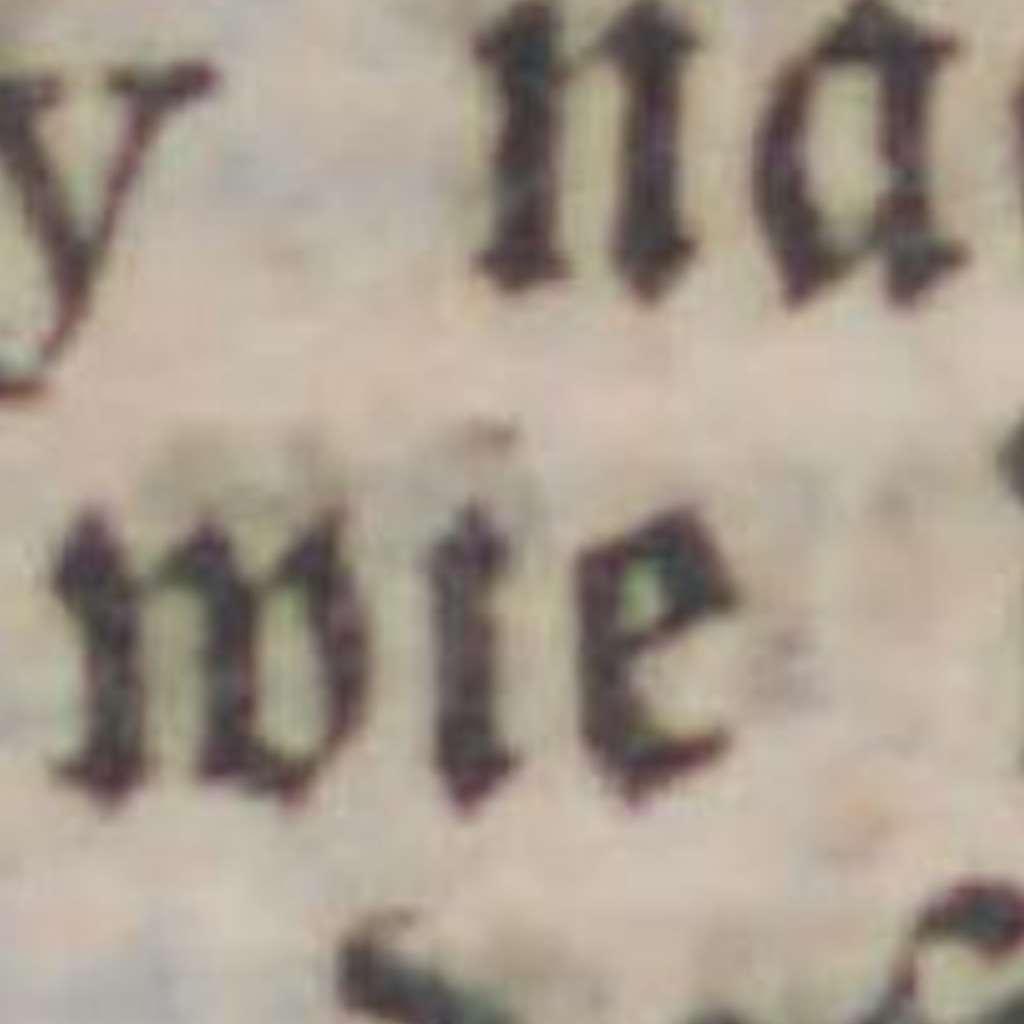 y na
wie